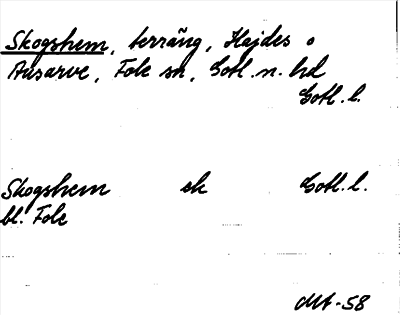 Skogshem, terräng, Hajdes o
Ausarve, Fole sn, Gotl. n. hd
Gotl. l.
Skogshem ek Gotl. l.
bl. Fole
-58